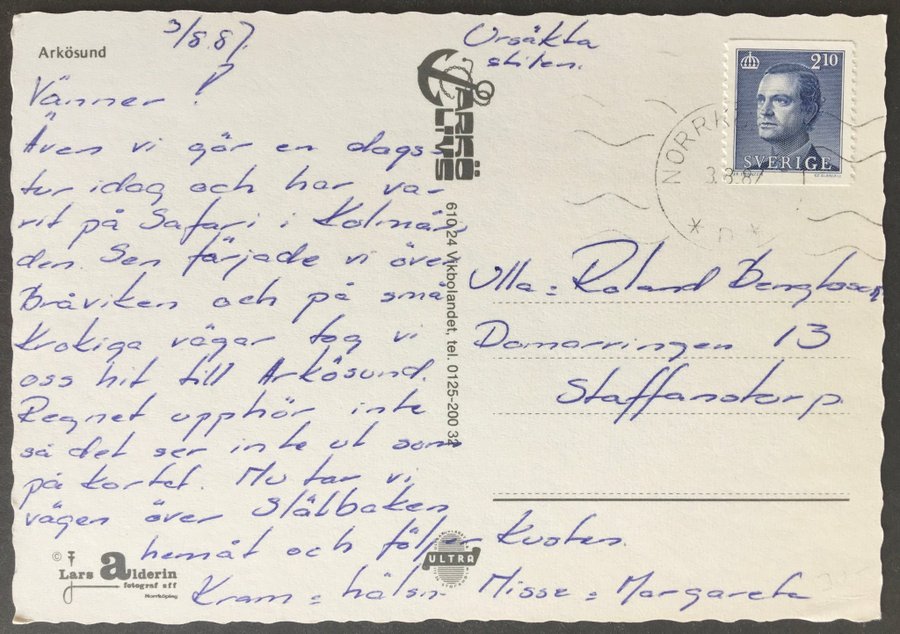 Arkösund
3/8.87.
Ursäkta
stilen.
Vänner!
Även vi gör en dags-
tur idag och har va-
rit på Safari i Kolmår-
den. Sen färjade vi över
Bråviken och på små
krokiga vägar tog vi
oss hit till Arkösund.
Regnet upphör inte
så det ser inte ut som
på kortet. Nu tar vi
vägen över Slätbaken
hemåt och följer kusten.
Kram = hälsn Nisse = Margareta
ARKÖ
LIVS
610 24 Vikbolandet, tel. 0125-200 32
2.10
SVERIGE
NORRK
3.8.87
Ulla = Roland Bengtsson
Domarringen 13
Staffanstorp.
© Lars alderin
fotograf sff
Norrköping
ULTRA